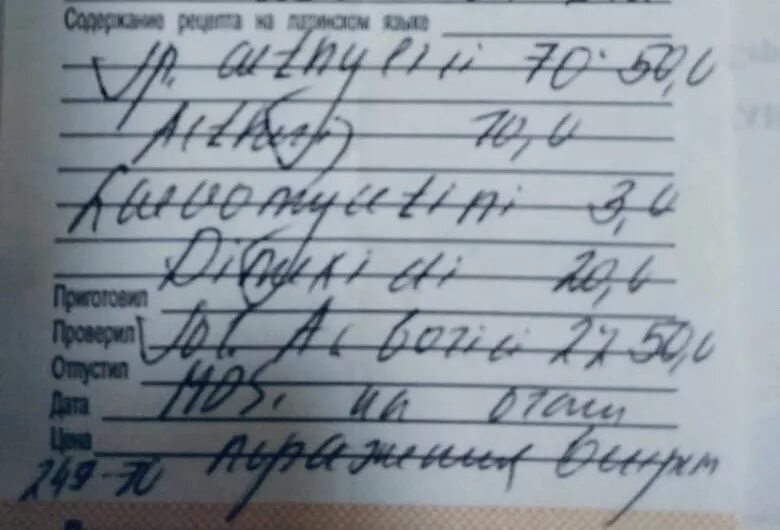 Содержание рецепта на латинском языке
Sp. aethylici 70° 50,0
Aether 10,0
Laevomycetini 3,0
Dimexidi 20,0
Приготовил
Проверил Sol. Ac borici 2% 50,0
Отпустил
Дата MDS. на очаги
Цена поражения
249-70